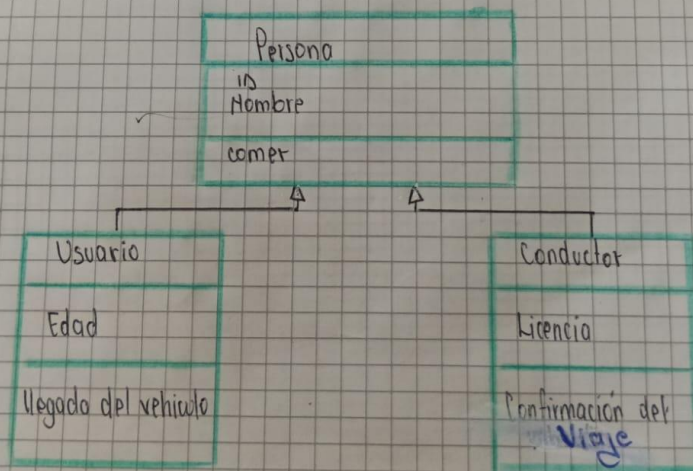 Persona
ID
Nombre
comer
Usuario
Edad
llegado del vehiculo
Conductor
Licencia
Confirmación del
Viaje